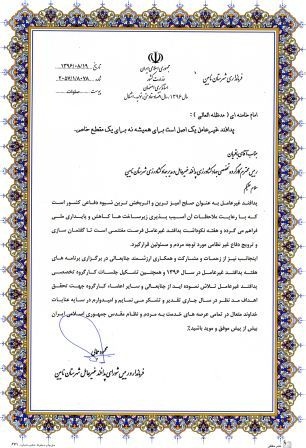 جمهوری اسلامی ایران
وزارت کشور
استانداری اصفهان
فرمانداری شهرستان نایین
تاریخ ۱۳۹۶/۰۸/۱۹
شماره ۲۰۵۷/۱/۸۰۷۸
پیوست
امام خامنه ای (مدظله العالی) :
پدافند غیرعامل یک اصل است برای همیشه نه برای یک مقطع خاص.
جناب آقای
سلام علیکم
پدافند غیرعامل به عنوان صلح آمیز ترین و اثربخش ترین شیوه دفاعی کشور است
که با رعایت ملاحظات آن آسیب پذیری زیرساخت ها کاهش و پایداری ملی
فراهم می گردد و هفته نکوداشت پدافند غیرعامل فرصت مغتنمی است تا گفتمان سازی
و ترویج دفاع غیر نظامی مورد توجه مردم و مسئولین قرارگیرد.
اینجانب نیز از زحمات و مشارکت و همکاری ارزشمند جنابعالی در برگزاری برنامه های
هفته پدافند غیرعامل در سال ۱۳۹۶ و همچنین تشکیل جلسات کارگروه تخصصی
پدافند غیرعامل تلاش نموده اید از جنابعالی و سایر اعضاء کارگروه جهت تحقق
اهداف مد نظر در سال جاری تقدیر و تشکر می نمایم و امیدوارم در سایه عنایات
خداوند متعال در تمامی عرصه های خدمت به مردم و نظام مقدس جمهوری اسلامی ایران
بیش از پیش موفق و موید باشید./
فرماندار و رییس شورای پدافند غیرعامل شهرستان نایین